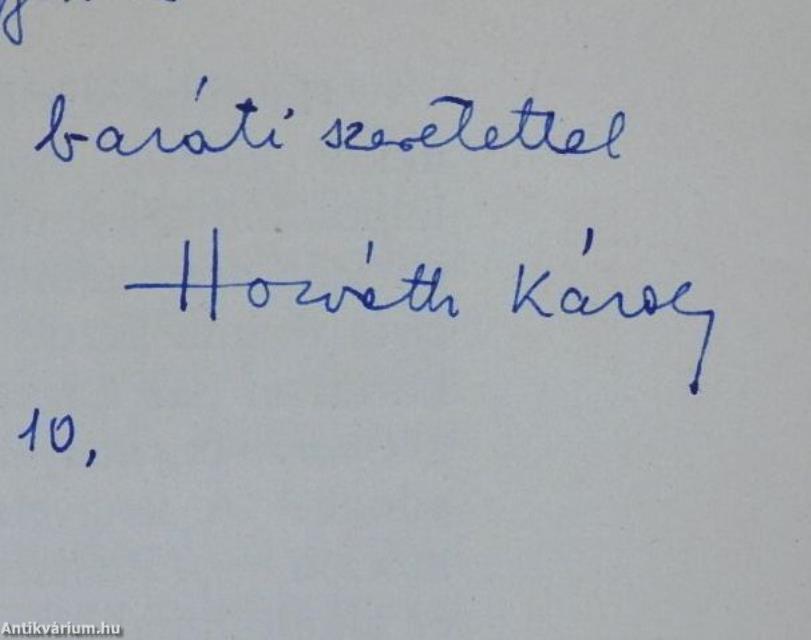 baráti szeretettel
Horváth Károly
10,
Antikvárium.hu